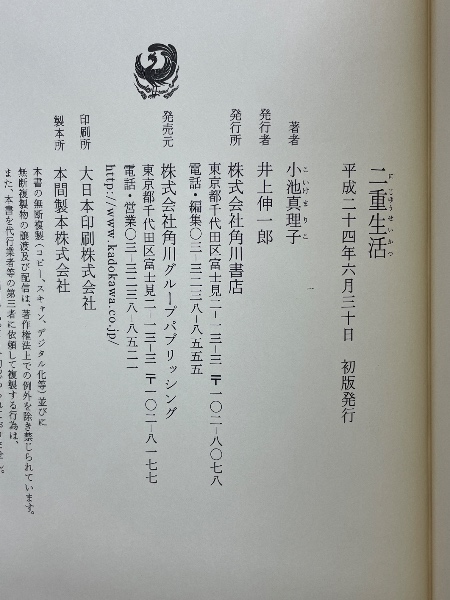 二重生活
にじゅうせいかつ
平成二十四年六月三十日　初版発行
著者　小池真理子
こいけまりこ
発行者　井上伸一郎
発行所　株式会社角川書店
東京都千代田区富士見二-一三-三　〒一〇二-八〇七八
電話・編集〇三-三二三八-八五五五
発売元　株式会社角川グループパブリッシング
東京都千代田区富士見二-一三-三　〒一〇二-八一七七
電話・営業〇三-三二三八-八五二一
http://www.kadokawa.co.jp/
印刷所　大日本印刷株式会社
製本所　本間製本株式会社
本書の無断複製（コピー、スキャン、デジタル化等）並びに
無断複製物の譲渡及び配信は、著作権法上での例外を除き禁じられています。
また、本書を代行業者等の第三者に依頼して複製する行為は、